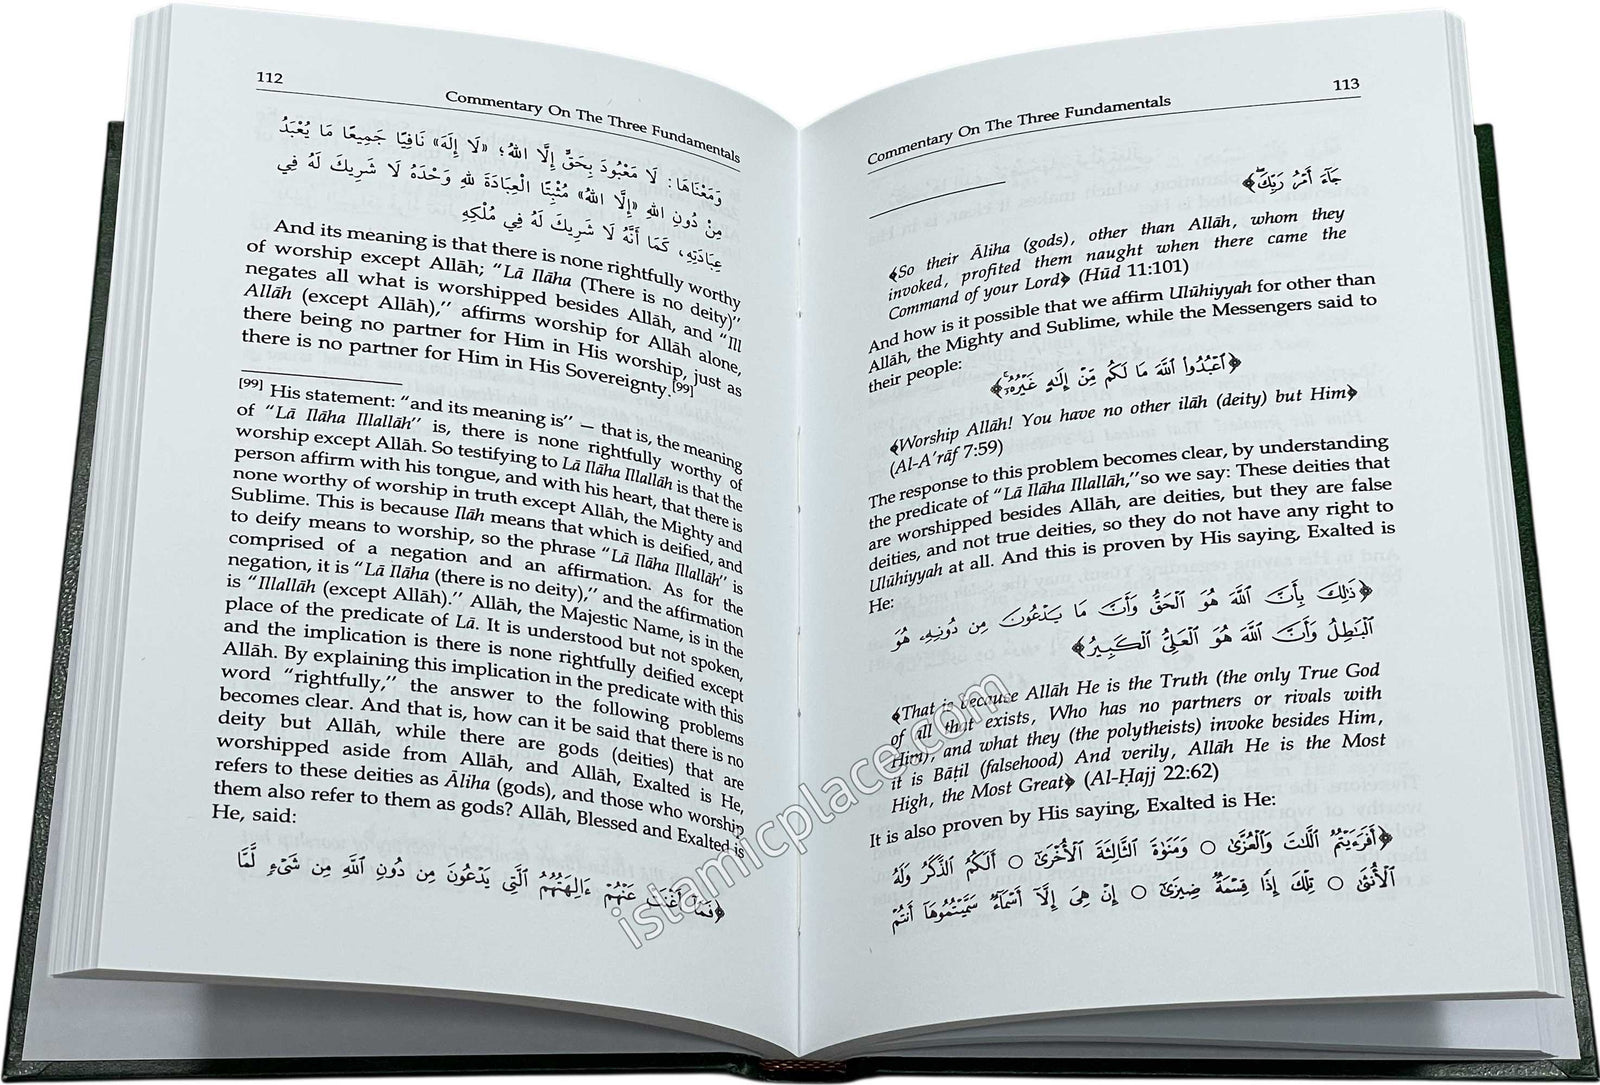 112
Commentary On The Three Fundamentals
وَمَعْنَاهَا: لَا مَعْبُودَ بِحَقٍّ إِلَّا اللهُ؛ «لَا إِلَهَ» نَافِيًا جَمِيعًا مَا يُعْبَدُ
مِنْ دُونِ اللهِ «إِلَّا اللهُ» مُثْبِتًا الْعِبَادَةَ لِلهِ وَحْدَهُ لَا شَرِيكَ لَهُ فِي
عِبَادَتِهِ، كَمَا أَنَّهُ لَا شَرِيكَ لَهُ فِي مُلْكِهِ
And its meaning is that there is none rightfully worthy
of worship except Allāh; “Lā Ilāha (There is no deity)”
negates all what is worshipped besides Allāh, and “Ill
Allāh (except Allāh),” affirms worship for Allāh alone,
there being no partner for Him in His worship, just as
there is no partner for Him in His Sovereignty.[99]
[99] His statement: “and its meaning is” — that is, the meaning
of “Lā Ilāha Illallāh” is, there is none rightfully worthy of
worship except Allāh. So testifying to Lā Ilāha Illallāh is that the
person affirm with his tongue, and with his heart, that there is
none worthy of worship in truth except Allāh, the Mighty and
Sublime. This is because Ilāh means that which is deified, and
to deify means to worship, so the phrase “Lā Ilāha Illallāh” is
comprised of a negation and an affirmation. As for the
negation, it is “Lā Ilāha (there is no deity),” and the affirmation
is “Illallāh (except Allāh).” Allāh, the Majestic Name, is in the
place of the predicate of Lā. It is understood but not spoken,
and the implication is there is none rightfully deified except
Allāh. By explaining this implication in the predicate with this
word “rightfully,” the answer to the following problems
becomes clear. And that is, how can it be said that there is no
deity but Allāh, while there are gods (deities) that are
worshipped aside from Allāh, and Allāh, Exalted is He,
refers to these deities as Āliha (gods), and those who worship
them also refer to them as gods? Allāh, Blessed and Exalted is
He, said:
﴿فَمَآ أَغْنَتْ عَنْهُمْ ءَالِهَتُهُمُ ٱلَّتِى يَدْعُونَ مِن دُونِ ٱللَّهِ مِن شَىْءٍ لَّمَّا
113
Commentary On The Three Fundamentals
جَآءَ أَمْرُ رَبِّكَ﴾
﴿So their Āliha (gods), other than Allāh, whom they
invoked, profited them naught when there came the
Command of your Lord﴾ (Hūd 11:101)
And how is it possible that we affirm Ulūhiyyah for other than
Allāh, the Mighty and Sublime, while the Messengers said to
their people:
﴿ٱعْبُدُوا۟ ٱللَّهَ مَا لَكُم مِّنْ إِلَٰهٍ غَيْرُهُۥٓ﴾
﴿Worship Allāh! You have no other ilāh (deity) but Him﴾
(Al-A’rāf 7:59)
The response to this problem becomes clear, by understanding
the predicate of “Lā Ilāha Illallāh,”so we say: These deities that
are worshipped besides Allāh, are deities, but they are false
deities, and not true deities, so they do not have any right to
Ulūhiyyah at all. And this is proven by His saying, Exalted is
He:
﴿ذَٰلِكَ بِأَنَّ ٱللَّهَ هُوَ ٱلْحَقُّ وَأَنَّ مَا يَدْعُونَ مِن دُونِهِۦ هُوَ
ٱلْبَٰطِلُ وَأَنَّ ٱللَّهَ هُوَ ٱلْعَلِىُّ ٱلْكَبِيرُ﴾
﴿That is because Allāh He is the Truth (the only True God
of all that exists, Who has no partners or rivals with
Him), and what they (the polytheists) invoke besides Him,
it is Bāṭil (falsehood) And verily, Allāh He is the Most
High, the Most Great﴾ (Al-Ḥajj 22:62)
It is also proven by His saying, Exalted is He:
﴿أَفَرَءَيْتُمُ ٱللَّٰتَ وَٱلْعُزَّىٰ ○ وَمَنَوٰةَ ٱلثَّالِثَةَ ٱلْأُخْرَىٰٓ ○ أَلَكُمُ ٱلذَّكَرُ وَلَهُ
ٱلْأُنثَىٰ ○ تِلْكَ إِذًا قِسْمَةٌ ضِيزَىٰٓ ○ إِنْ هِىَ إِلَّآ أَسْمَآءٌ سَمَّيْتُمُوهَآ أَنتُمْ
islamicplace.com